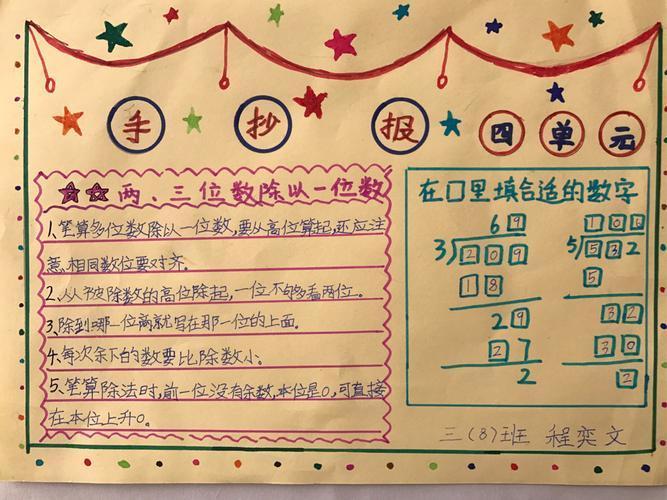 手 抄 报 四 单 元
两、三位数除以一位数
1、笔算多位数除以一位数,要从高位算起,还应注
意、相同数位要对齐。
2、从被除数的高位除起,一位不够多看两位。
3、除到哪一位商就写在那一位的上面。
4、每次余下的数要比除数小。
5、笔算除法时,前一位没有余数,本位是0,可直接
在本位上升0。
在□里填合适的数字
69
3)209
18
29
27
2
5)532
5
32
30
2
三(8)班 程奕文